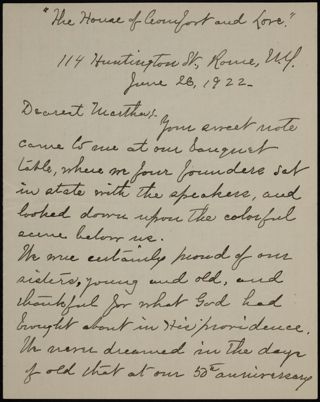 "The House of Comfort and Love."
114 Huntington St, Rome, N.Y.
June 26, 1922.
Dearest Martha:
Your sweet note
came to me at our banquet
table, where we four founders sat
in state with the speakers, and
looked down upon the colorful
scene below us.
We were certainly proud of our
sisters, young and old, and
thankful for what God had
brought about in His providence.
We never dreamed in the days
of old that at our 50th anniversary